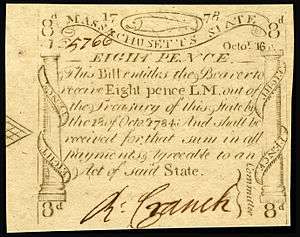 8d 17 78 8d
MASSACHUSETTS STATE
5766 Octor. 16
EIGHT PENCE.
This Bill entitles the Bearer to
receive Eight pence L.M. out of
the Treasury of this State by
the 18 of Octr. 1784; And shall be
received for that sum in all
payments agreeable to an
Act of said State.
EIGHT PENCE
EIGHT PENCE
Committee
R. Cranch
8d 8d